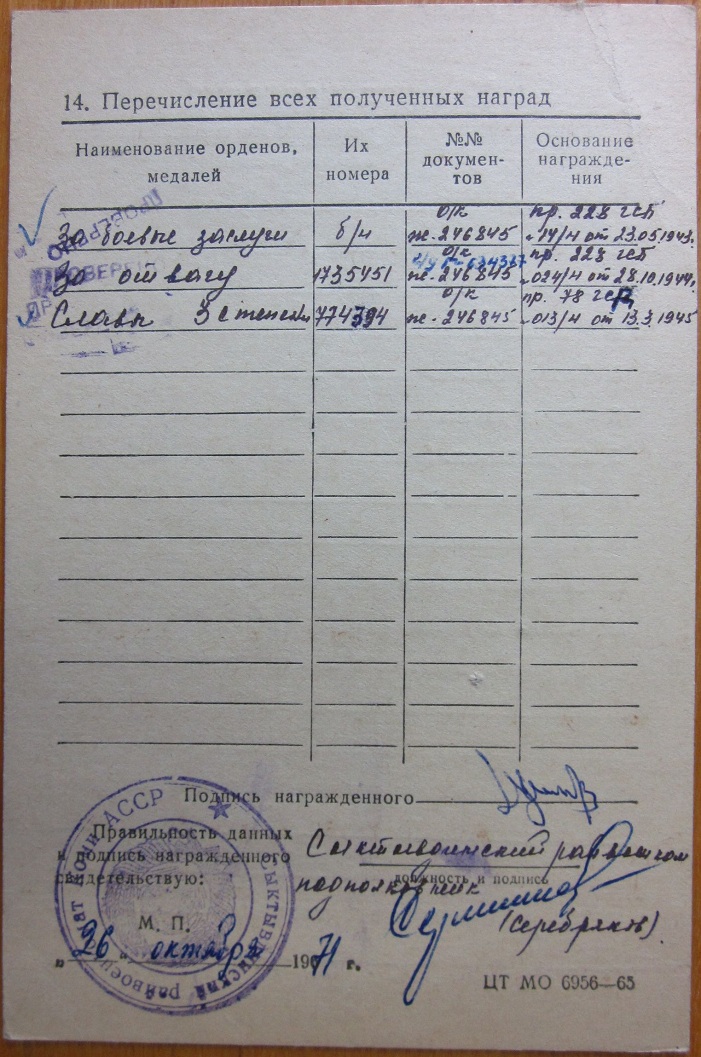 14. Перечисление всех полученных наград
Наименование орденов, медалей
Их номера
№№ документов
Основание награждения
ПРОВЕРЕНО
ПРОВЕРЕНО
За боевые заслуги б/н о/к ж-246845 пр. 228 гсп №14/н от 23.05.1943г
За отвагу 1735451 о/к ж-246845 пр. 228 гсп №024/н от 28.10.1944г
Славы 3 степени 774394 о/к ж-246845 пр. 78 гсд №013/н от 13.3.1945
Подпись награжденного
Правильность данных
и подпись награжденного
свидетельствую:
Сыктывдинский райвоенком
должность и подпись
подполковник
(Серебряков)
М. П.
„26" октября 1971 г.
ЦТ МО 6956—65
КОМИ АССР
Сыктывдинский райвоенкомат